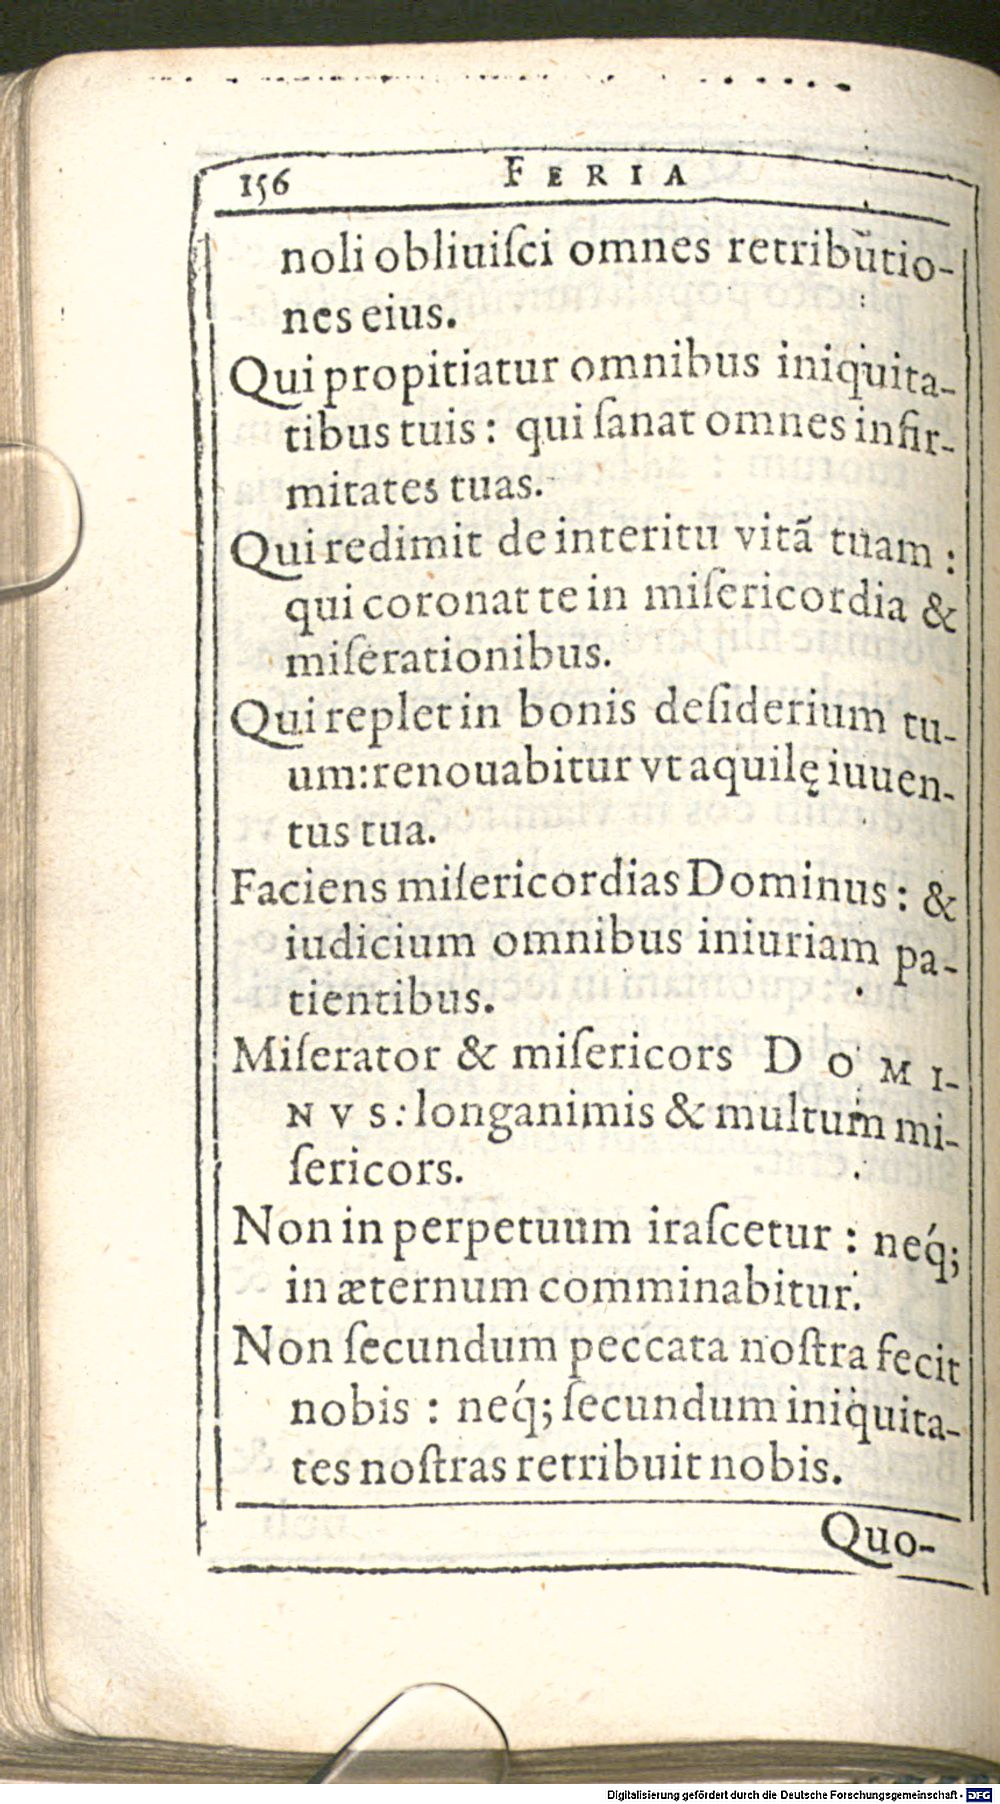 156 FERIA
noli obliuiſci omnes retributio-
nes eius.
Qui propitiatur omnibus iniquita-
tibus tuis : qui ſanat omnes infir-
mitates tuas.
Qui redimit de interitu vitã tuam :
qui coronat te in miſericordia &
miſerationibus.
Qui replet in bonis deſiderium tu-
um: renouabitur vt aquilę iuuen-
tus tua.
Faciens miſericordias Dominus : &
iudicium omnibus iniuriam pa-
tientibus.
Miſerator & miſericors DOMI-
NVS : longanimis & multum mi-
ſericors.
Non in perpetuum iraſcetur : neq́;
in æternum comminabitur.
Non ſecundum peccata noſtra fecit
nobis : neq́; ſecundum iniquita-
tes noſtras retribuit nobis.
Quo-
Digitalisierung gefördert durch die Deutsche Forschungsgemeinschaft - DFG